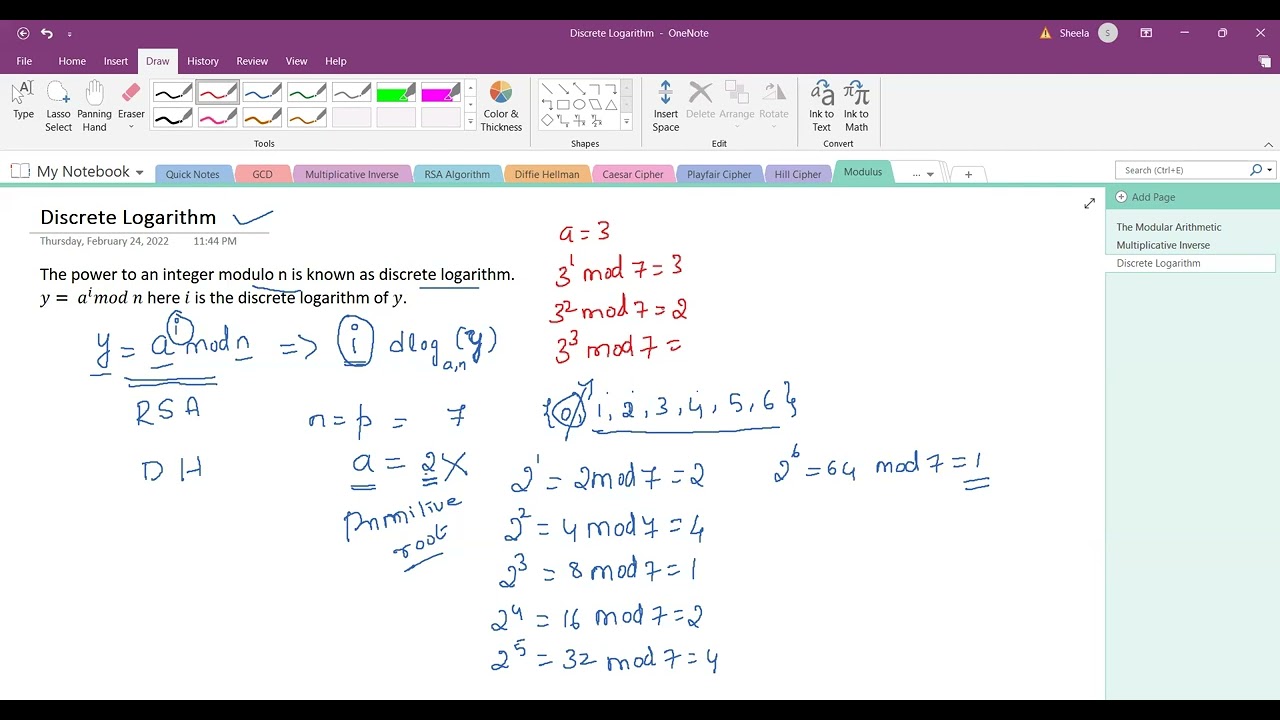 Discrete Logarithm - OneNote
Sheela
S
File Home Insert Draw History Review View Help
Type
Lasso Select
Panning Hand
Eraser
Color & Thickness
Insert Space
Delete
Arrange
Rotate
Ink to Text
Ink to Math
Tools
Shapes
Edit
Convert
My Notebook
Quick Notes GCD Multiplicative Inverse RSA Algorithm Diffie Hellman Caesar Cipher Playfair Cipher Hill Cipher Modulus ... +
Search (Ctrl+E)
Add Page
The Modular Arithmetic
Multiplicative Inverse
Discrete Logarithm
Discrete Logarithm ✓
Thursday, February 24, 2022 11:44 PM
The power to an integer modulo n is known as discrete logarithm.
y = aⁱ mod n here i is the discrete logarithm of y.
y = aⁱ mod n => i dlog a,n (y)
RSA
DH
n = p = 7
a = 2 X
root
a = 3
3¹ mod 7 = 3
3² mod 7 = 2
3³ mod 7 =
{0, 1, 2, 3, 4, 5, 6}
2¹ = 2 mod 7 = 2
2² = 4 mod 7 = 4
2³ = 8 mod 7 = 1
2⁴ = 16 mod 7 = 2
2⁵ = 32 mod 7 = 4
2⁶ = 64 mod 7 = 1